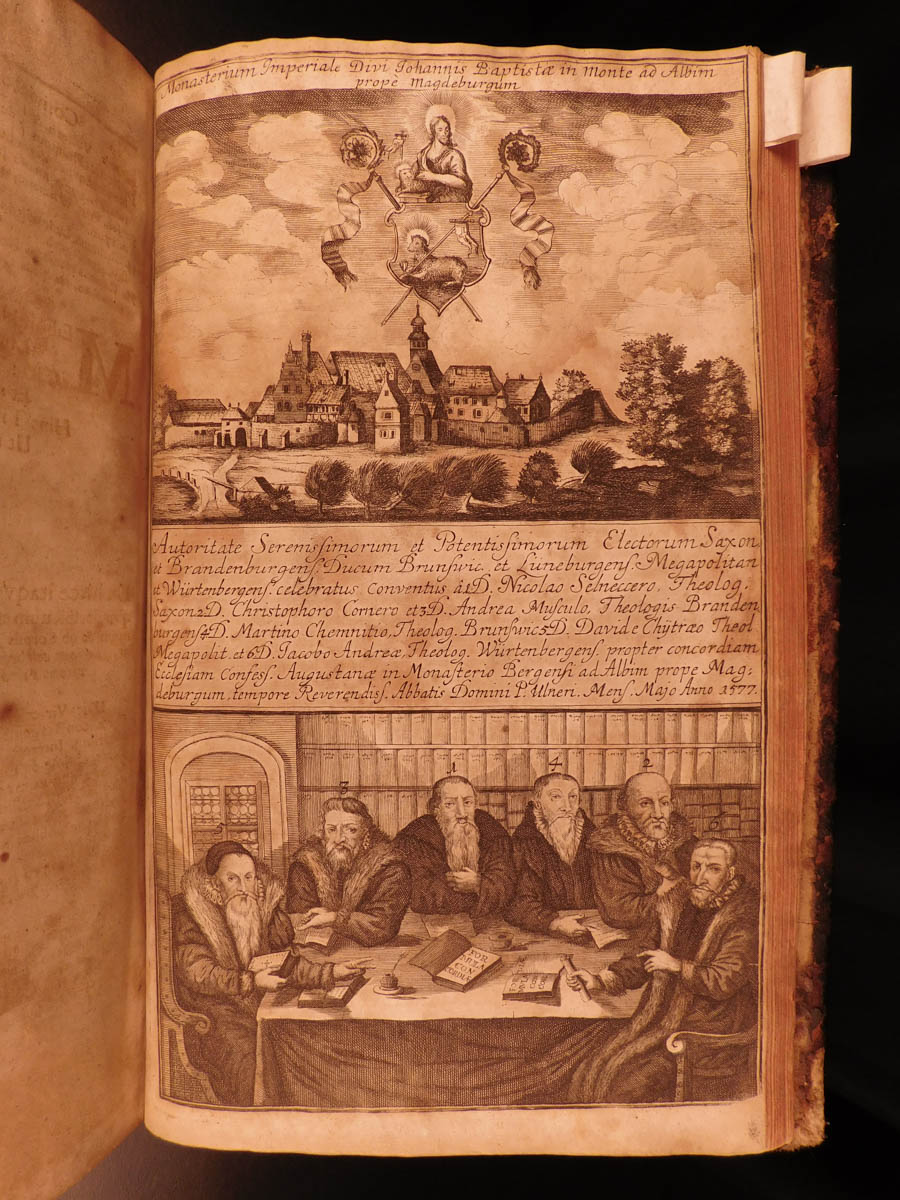 Monasterium Imperiale Divi Iohannis Baptistæ in monte ad Albim
prope Magdeburgum
Autoritate Serenissimorum et Potentissimorum Electorum Saxon.
et Brandenburgens. Ducum Brunswic. et Lüneburgens. Megapolitan
et Würtenbergens. celebratus Conventus â 1 D. Nicolao Selneccero, Theolog.
Saxon 2 D. Christophoro Cornero et 3 D. Andrea Musculo, Theologis Branden
burgens 4 D. Martino Chemnitio, Theolog. Brunswic 5 D. Davide Chÿtræo Theol.
Megapolit. et 6 D. Iacobo Andreæ, Theolog. Würtenbergens. propter concordiam
Ecclesiam Confess. Augustanæ in Monasterio Bergensi ad Albim prope Mag:
deburgum, tempore Reverendiss. Abbatis Domini P. Ulneri. Mens. Majo Anno 1577.
5
3
1
4
2
6
FOR
MVLA
CON
CORDIÆ
FOR
MVLA
CON
COR
M